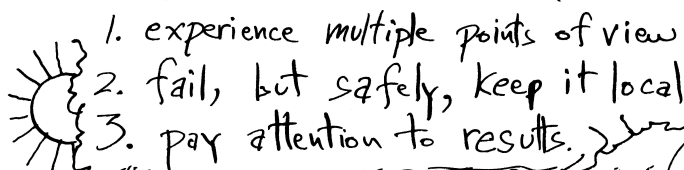 1. experience multiple points of view
2. fail, but safely, keep it local
3. pay attention to results.